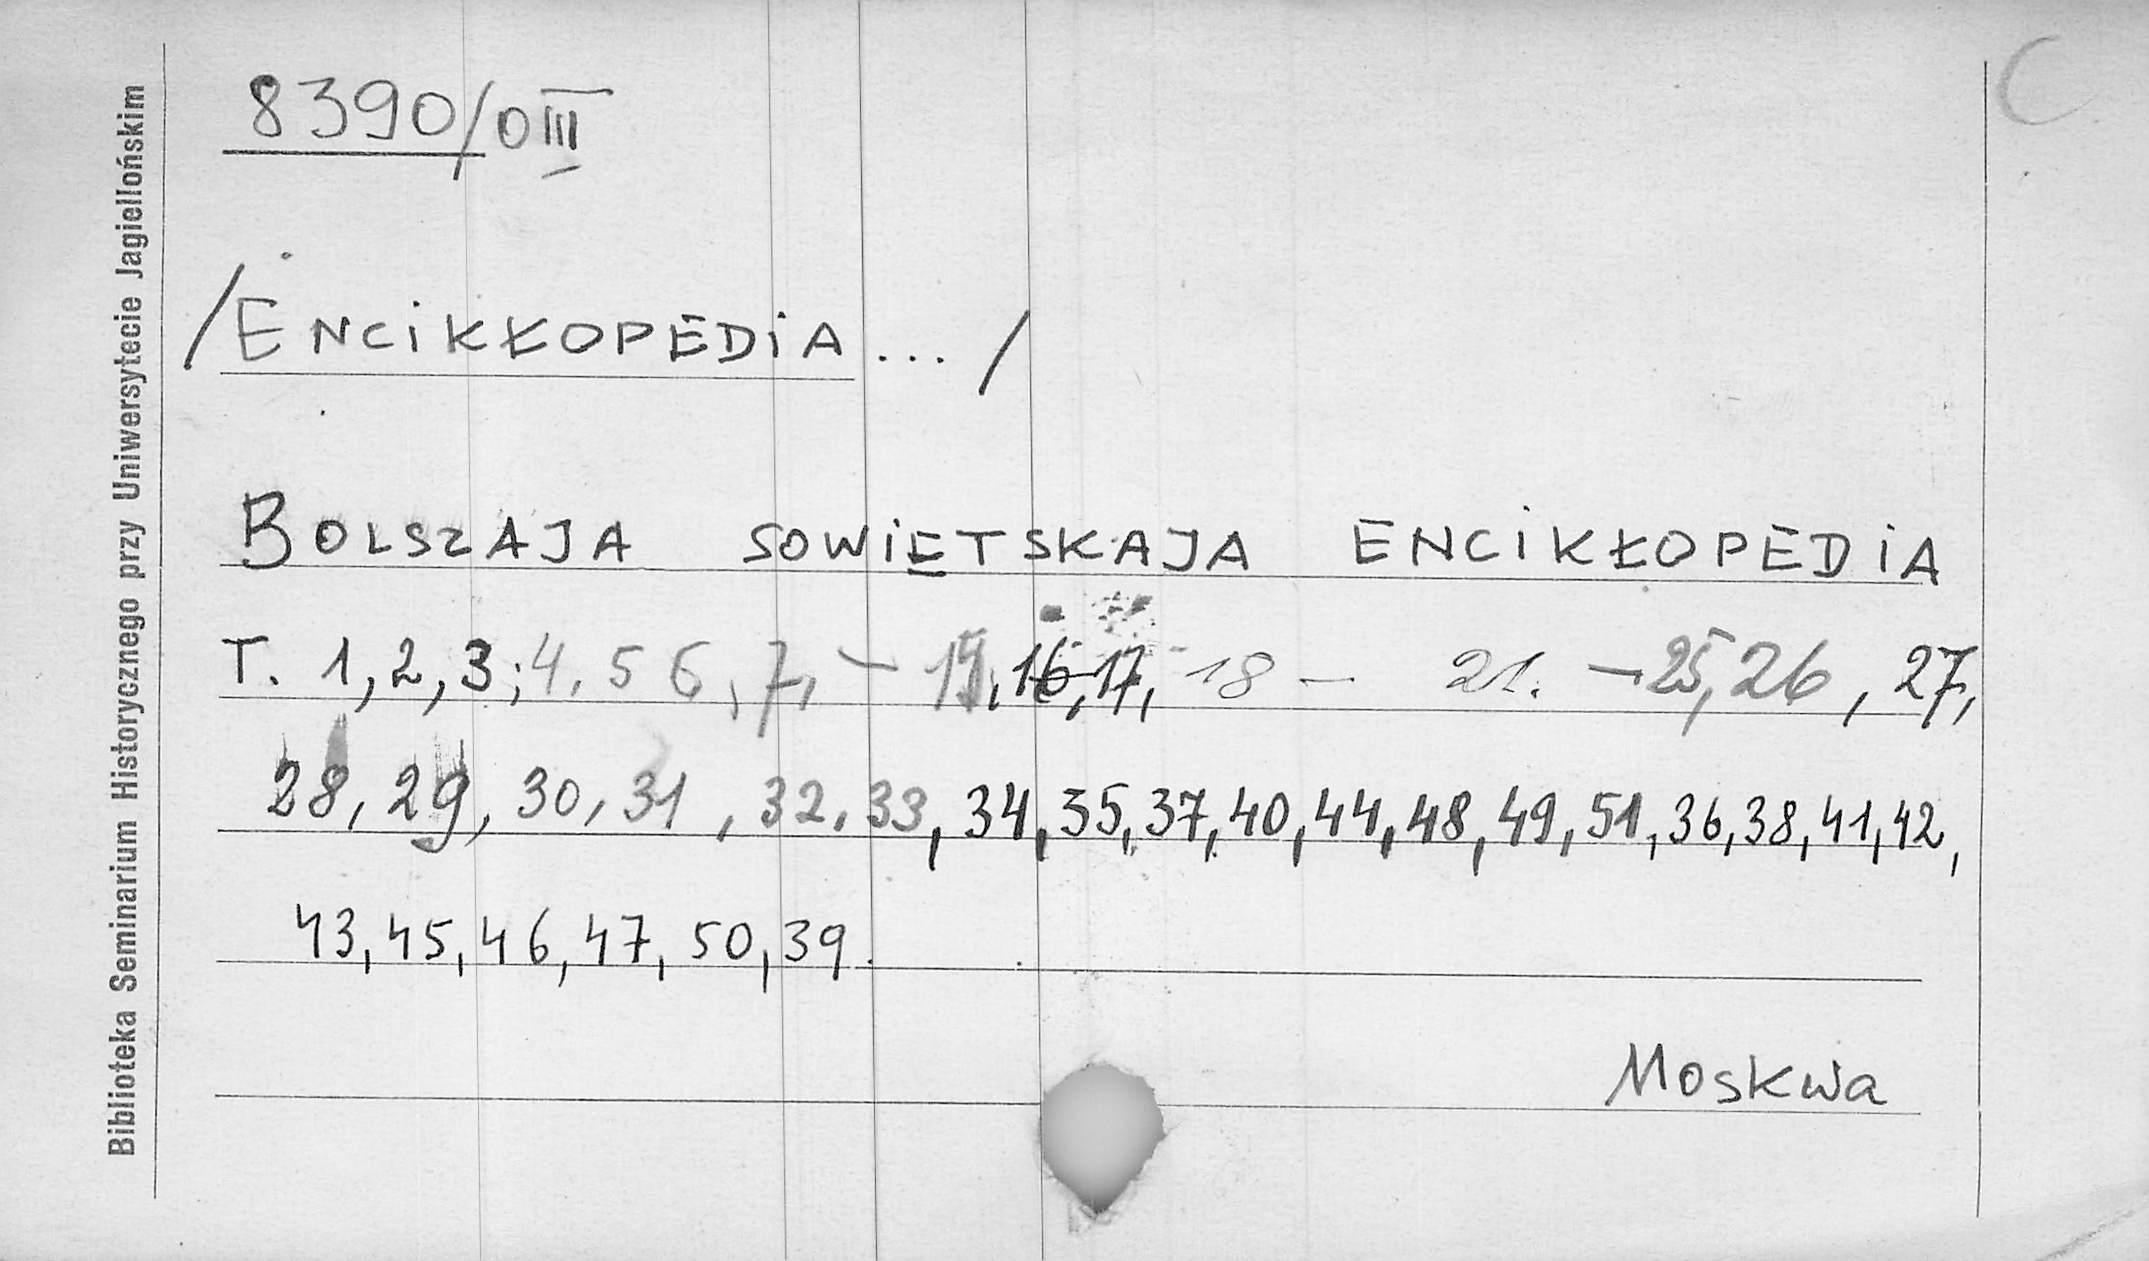 8390/0 III
/ENCIKŁOPEDIA .../
BOLSZAJA SOWIETSKAJA ENCIKŁOPEDIA
T. 1, 2, 3; 4, 5 6, 7, – 15, 16, 17, - 18 – 21. – 25, 26, 27,
28, 29, 30, 31, 32, 33, 34, 35, 37, 40, 44, 48, 49, 51, 36, 38, 41, 42,
43, 45, 46, 47, 50, 39.
Moskwa
Biblioteka Seminarium Historycznego przy Uniwersytecie Jagiellońskim